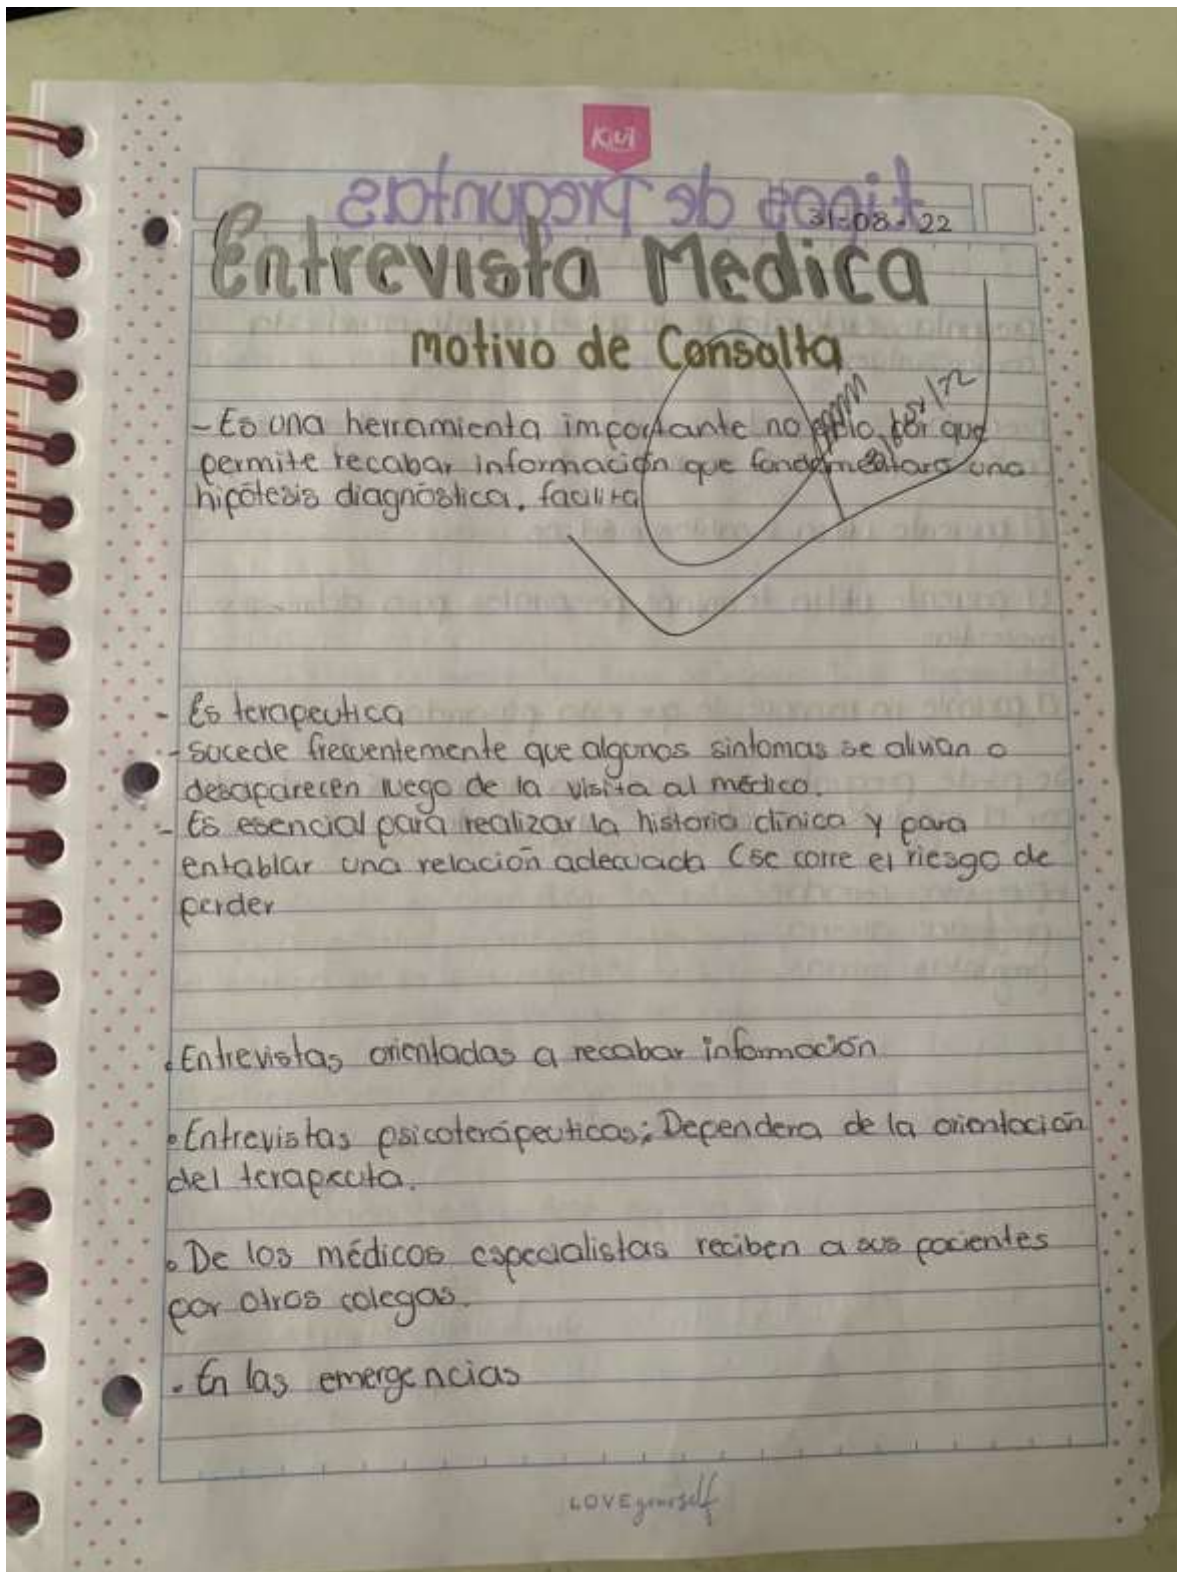 Kiut
tipos de preguntas
31-08-22
Entrevista Medica
motivo de Consulta
- Es una herramienta importante no solo por que
permite recabar información que fundamentara una
hipótesis diagnóstica. facilita
- Es terapeutica
- Sucede frecuentemente que algunos sintomas se alivian o
desaparecen luego de la visita al médico.
- Es esencial para realizar la historia clínica y para
entablar una relación adecuada (se corre el riesgo de
perder
• Entrevistas orientadas a recabar información
• Entrevistas psicoterápeuticas; Dependera de la orientación
del terapeuta.
• De los médicos especialistas reciben a sus pacientes
por otros colegas.
• En las emergencias
LOVE yourself